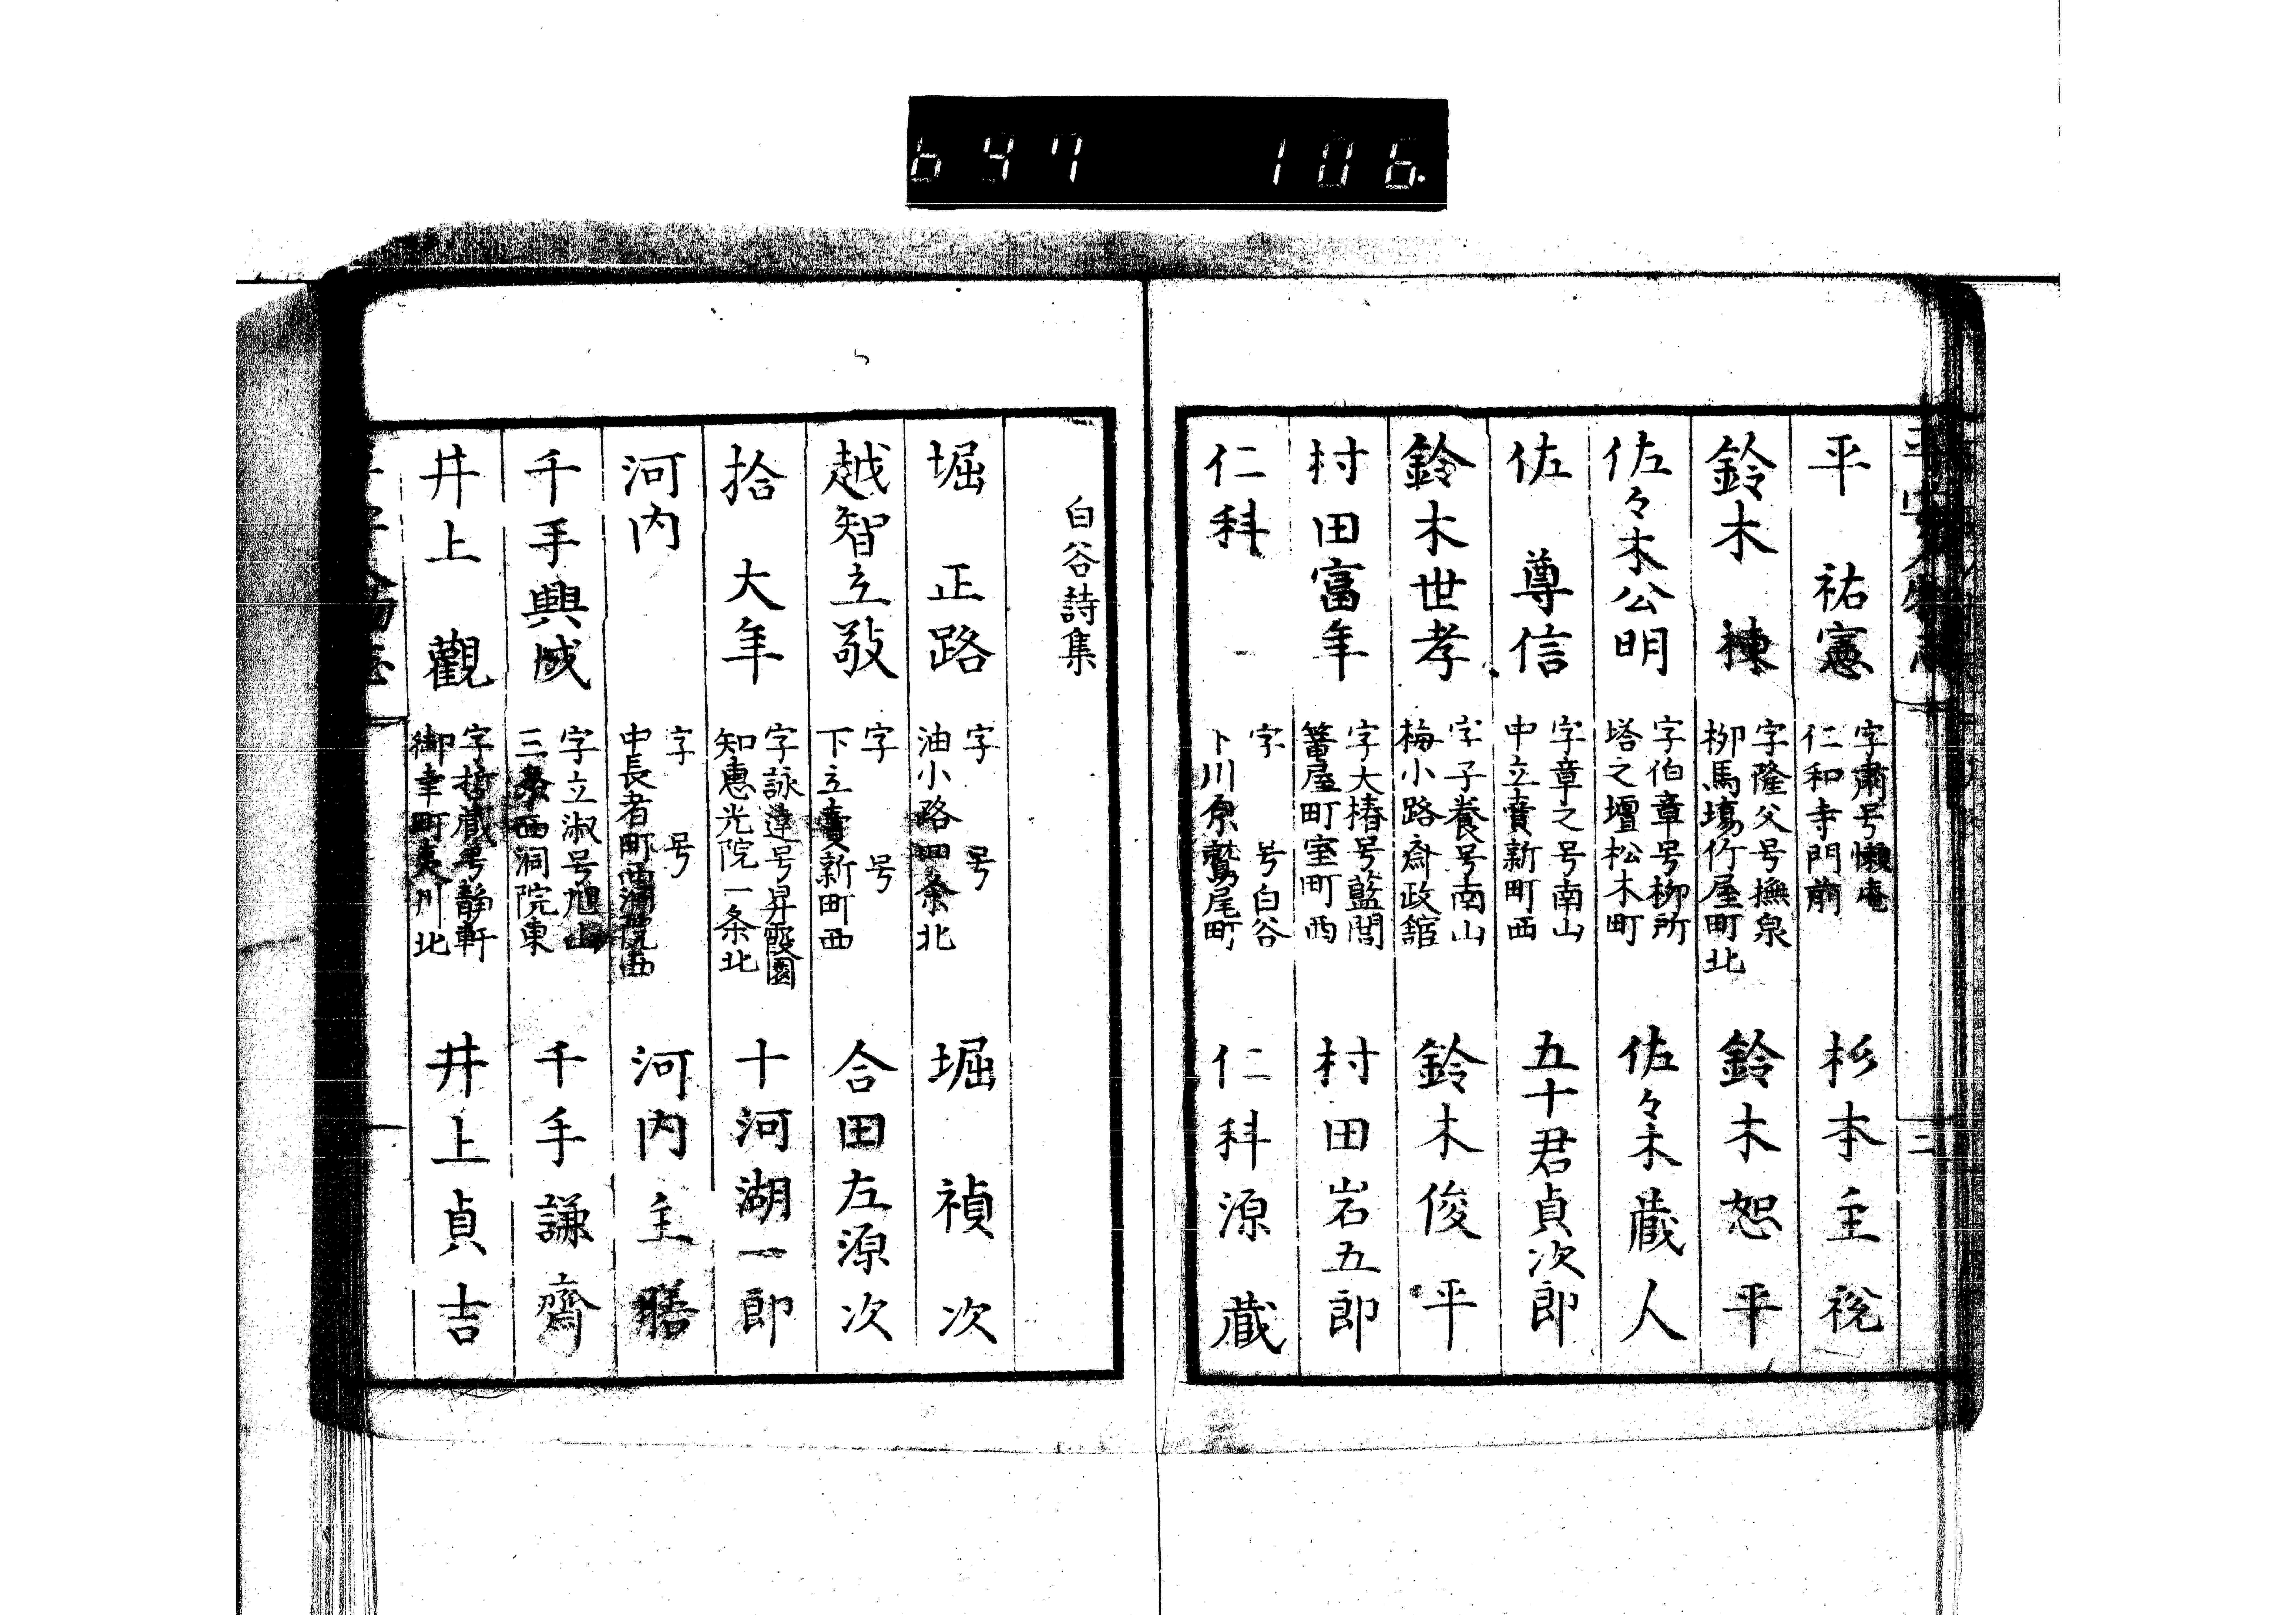 647 106
平祐憲 字肅号懶庵 仁和寺門前 杉本主税
鈴木棟 字隆父号撫泉 柳馬場竹屋町北 鈴木恕平
佐々木公明 字伯章号柳所 塔之壇松木町 佐々木蔵人
佐尊信 字章之号南山 中立賣新町西 五十君貞次郎
鈴木世孝 字子養号南山 梅小路齋政館 鈴木俊平
村田富年 字大椿号藍閣 屋町室町西 村田岩五郎
仁科 字 号白谷 川原鷲尾町 仁科源蔵
白谷詩集
堀正路 字 号 油小路四条北 堀禎次
越智立敬 字 号 下立賣新町西 合田左源次
拾大年 字詠違号昇霞園 知惠光院一条北 十河湖一郎
河内 字 号 中長者町西洞院西 河内主膳
千手興成 字立淑号旭山 三条西洞院東 千手謙齋
井上觀 字哲蔵号静軒 御幸町夷川北 井上貞吉